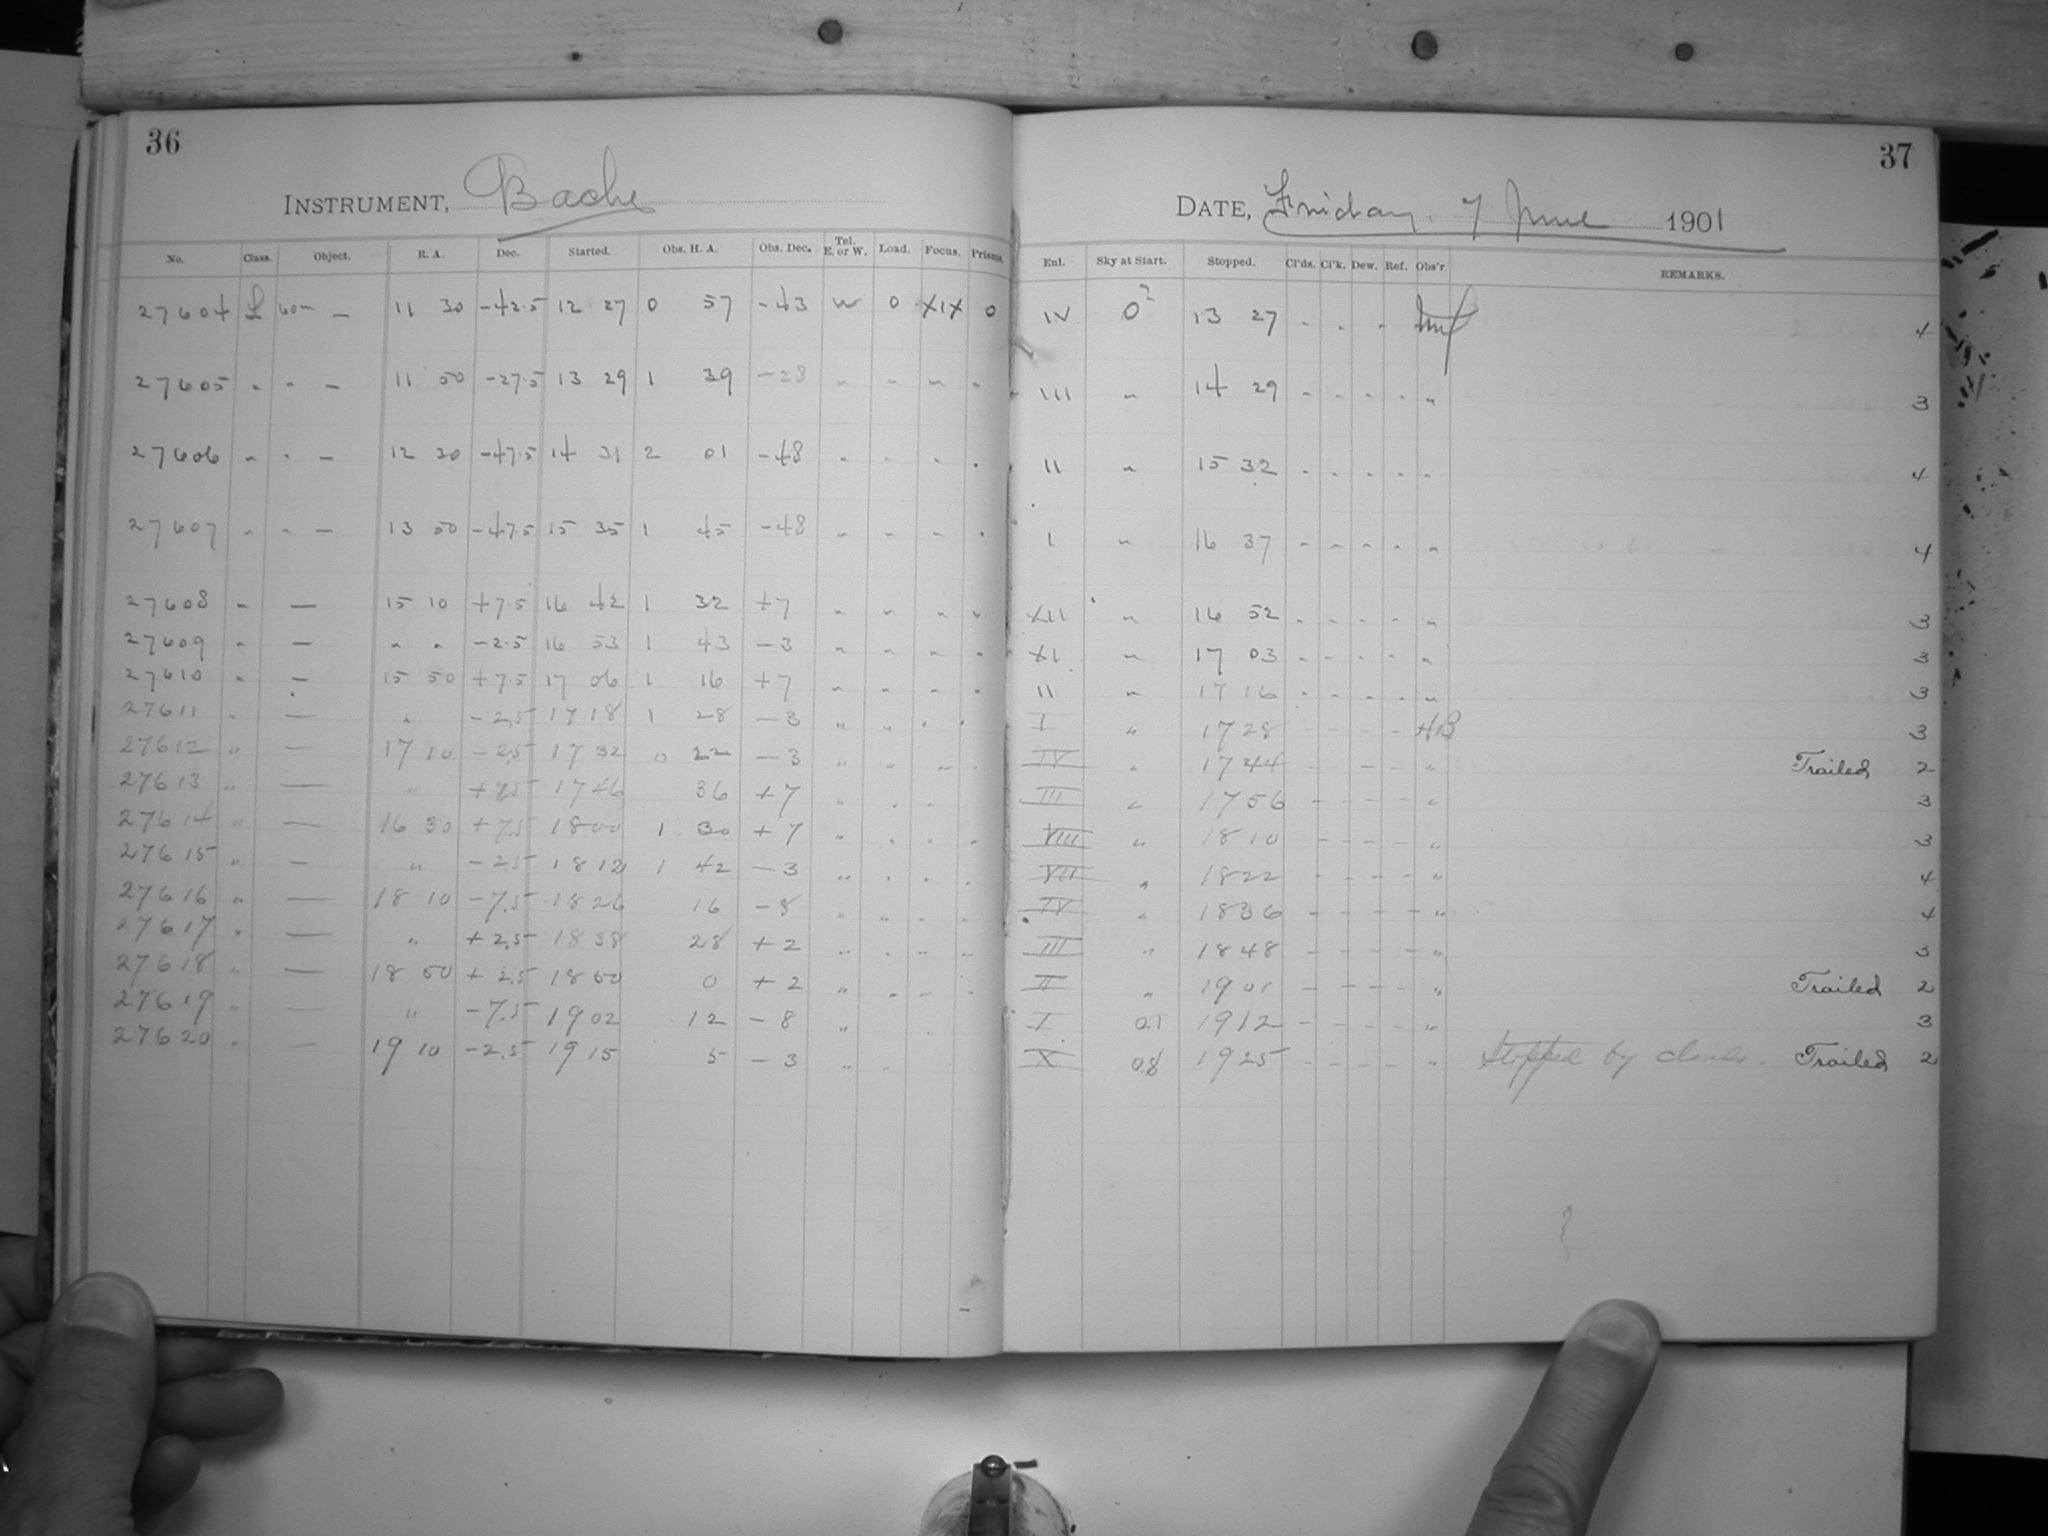 36
INSTRUMENT, Bache
No. Class. Object. R. A. Dec. Started. Obs. H. A. Obs. Dec. Tel. E. or W. Load. Focus. Prisms.
27604 L 60m — 11 30 -42.5 12 27 0 57 -43 W 0 XIX 0
27605 " " — 11 50 -27.5 13 29 1 39 -28 " " " "
27606 " " — 12 30 -47.5 14 31 2 01 -48 " " " "
27607 " " — 13 50 -47.5 15 35 1 45 -48 " " " "
27608 " — 15 10 +7.5 16 42 1 32 +7 " " " "
27609 " — " " -2.5 16 53 1 43 -3 " " " "
27610 " — 15 50 +7.5 17 06 1 16 +7 " " " "
27611 " — " -2.5 17 18 1 28 -3 " " " "
27612 " — 17 10 -2.5 17 32 0 22 -3 " " " "
27613 " — " +7.5 17 46 36 +7 " " "
27614 " — 16 30 +7.5 18 00 1 30 +7 " " " "
27615 " — " -2.5 18 12 1 42 -3 " " " "
27616 " — 18 10 -7.5 18 26 16 -8 " " " "
27617 " — " +2.5 18 38 28 +2 " " " "
27618 " — 18 50 +2.5 18 50 0 +2 " " " "
27619 " — " -7.5 19 02 12 -8 " "
27620 " — 19 10 -2.5 19 15 5 -3 " "
37
DATE, Friday. 7 June 1901
Enl. Sky at Start. Stopped. Cl'ds. Cl'k. Dew. Ref. Obs'r. REMARKS.
IV 0? 13 27 - - - 4
III " 14 29 - - - - " 3
II " 15 32 - - - - " 4
I " 16 37 - - - - " 4
XII " 16 52 - - - - " 3
XI " 17 03 - - - - " 3
II " 17 16 - - - - " 3
I " 17 28 - - - - HB 3
IV " 17 44 - - - - " Trailed 2
III " 17 56 - - - - " 3
VIII " 18 10 - - - - " 3
VII " 18 22 - - - - " 4
IV " 18 36 - - - - " 4
III " 18 48 - - - - " 3
II " 19 01 - - - - " Trailed 2
I 0.1 19 12 - - - - " 3
X 0.8 19 25 - - - - " Stopped by clouds. Trailed 2